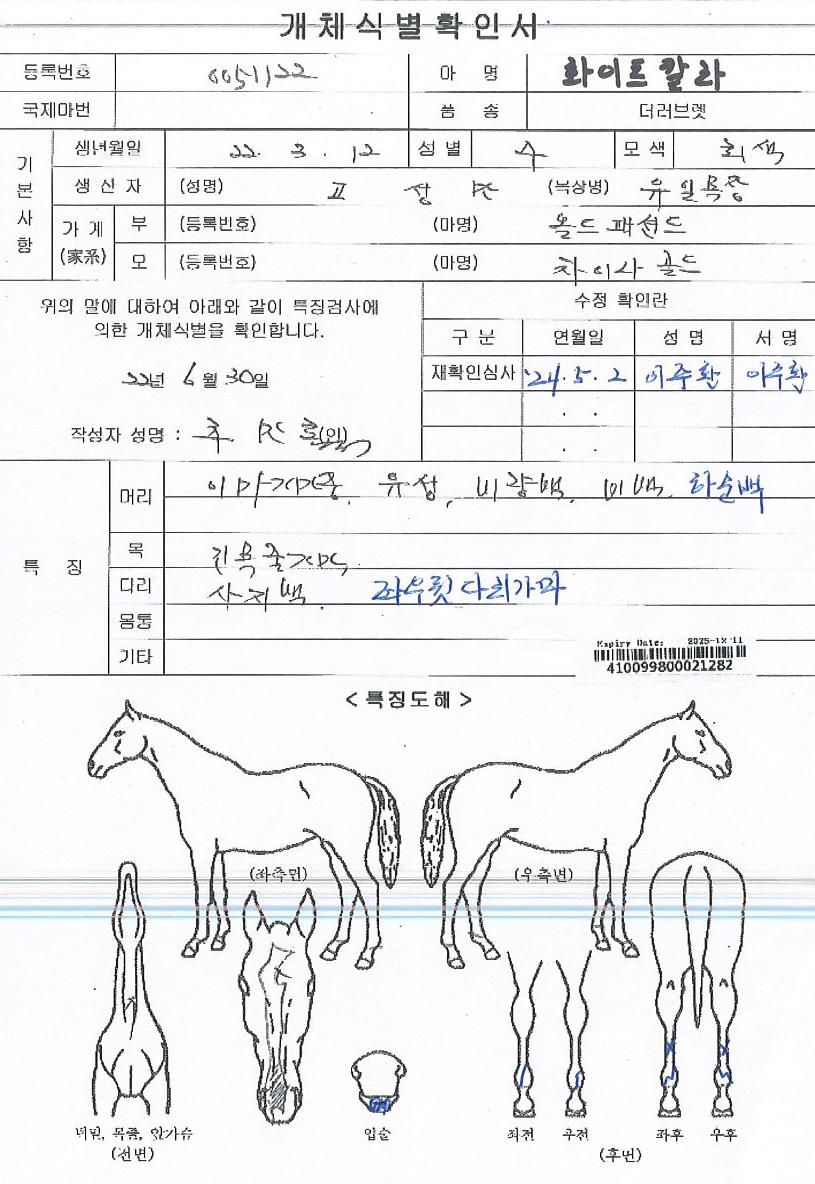 개체식별확인서
등록번호 0051122 마 명 화이트칼라
국제마번 품 종 더러브렛
기본사항
생년월일 22. 3. 12 성별 수 모색 회색
생산자 (성명) (목장명) 유일목장
가계(家系) 부 (등록번호) (마명) 올드패션드
모 (등록번호) (마명) 차이사골드
위의 말에 대하여 아래와 같이 특징검사에
의한 개체식별을 확인합니다.
22년 6월 30일
작성자 성명 : (인)
수정 확인란
구 분 연월일 성 명 서 명
재확인심사 '24. 5. 2 이주환 이주환
. .
. .
특 징
머리 유성, 비량백, 비백, 하순백
목
다리 사지백
몸통
기타
Expiry Date: 2025-12-11
410099800021282
< 특징도해 >
(좌측면) (우측면)
턱밑, 목줄, 앞가슴
(전면)
입술
좌전 우전 좌후 우후
(후면)